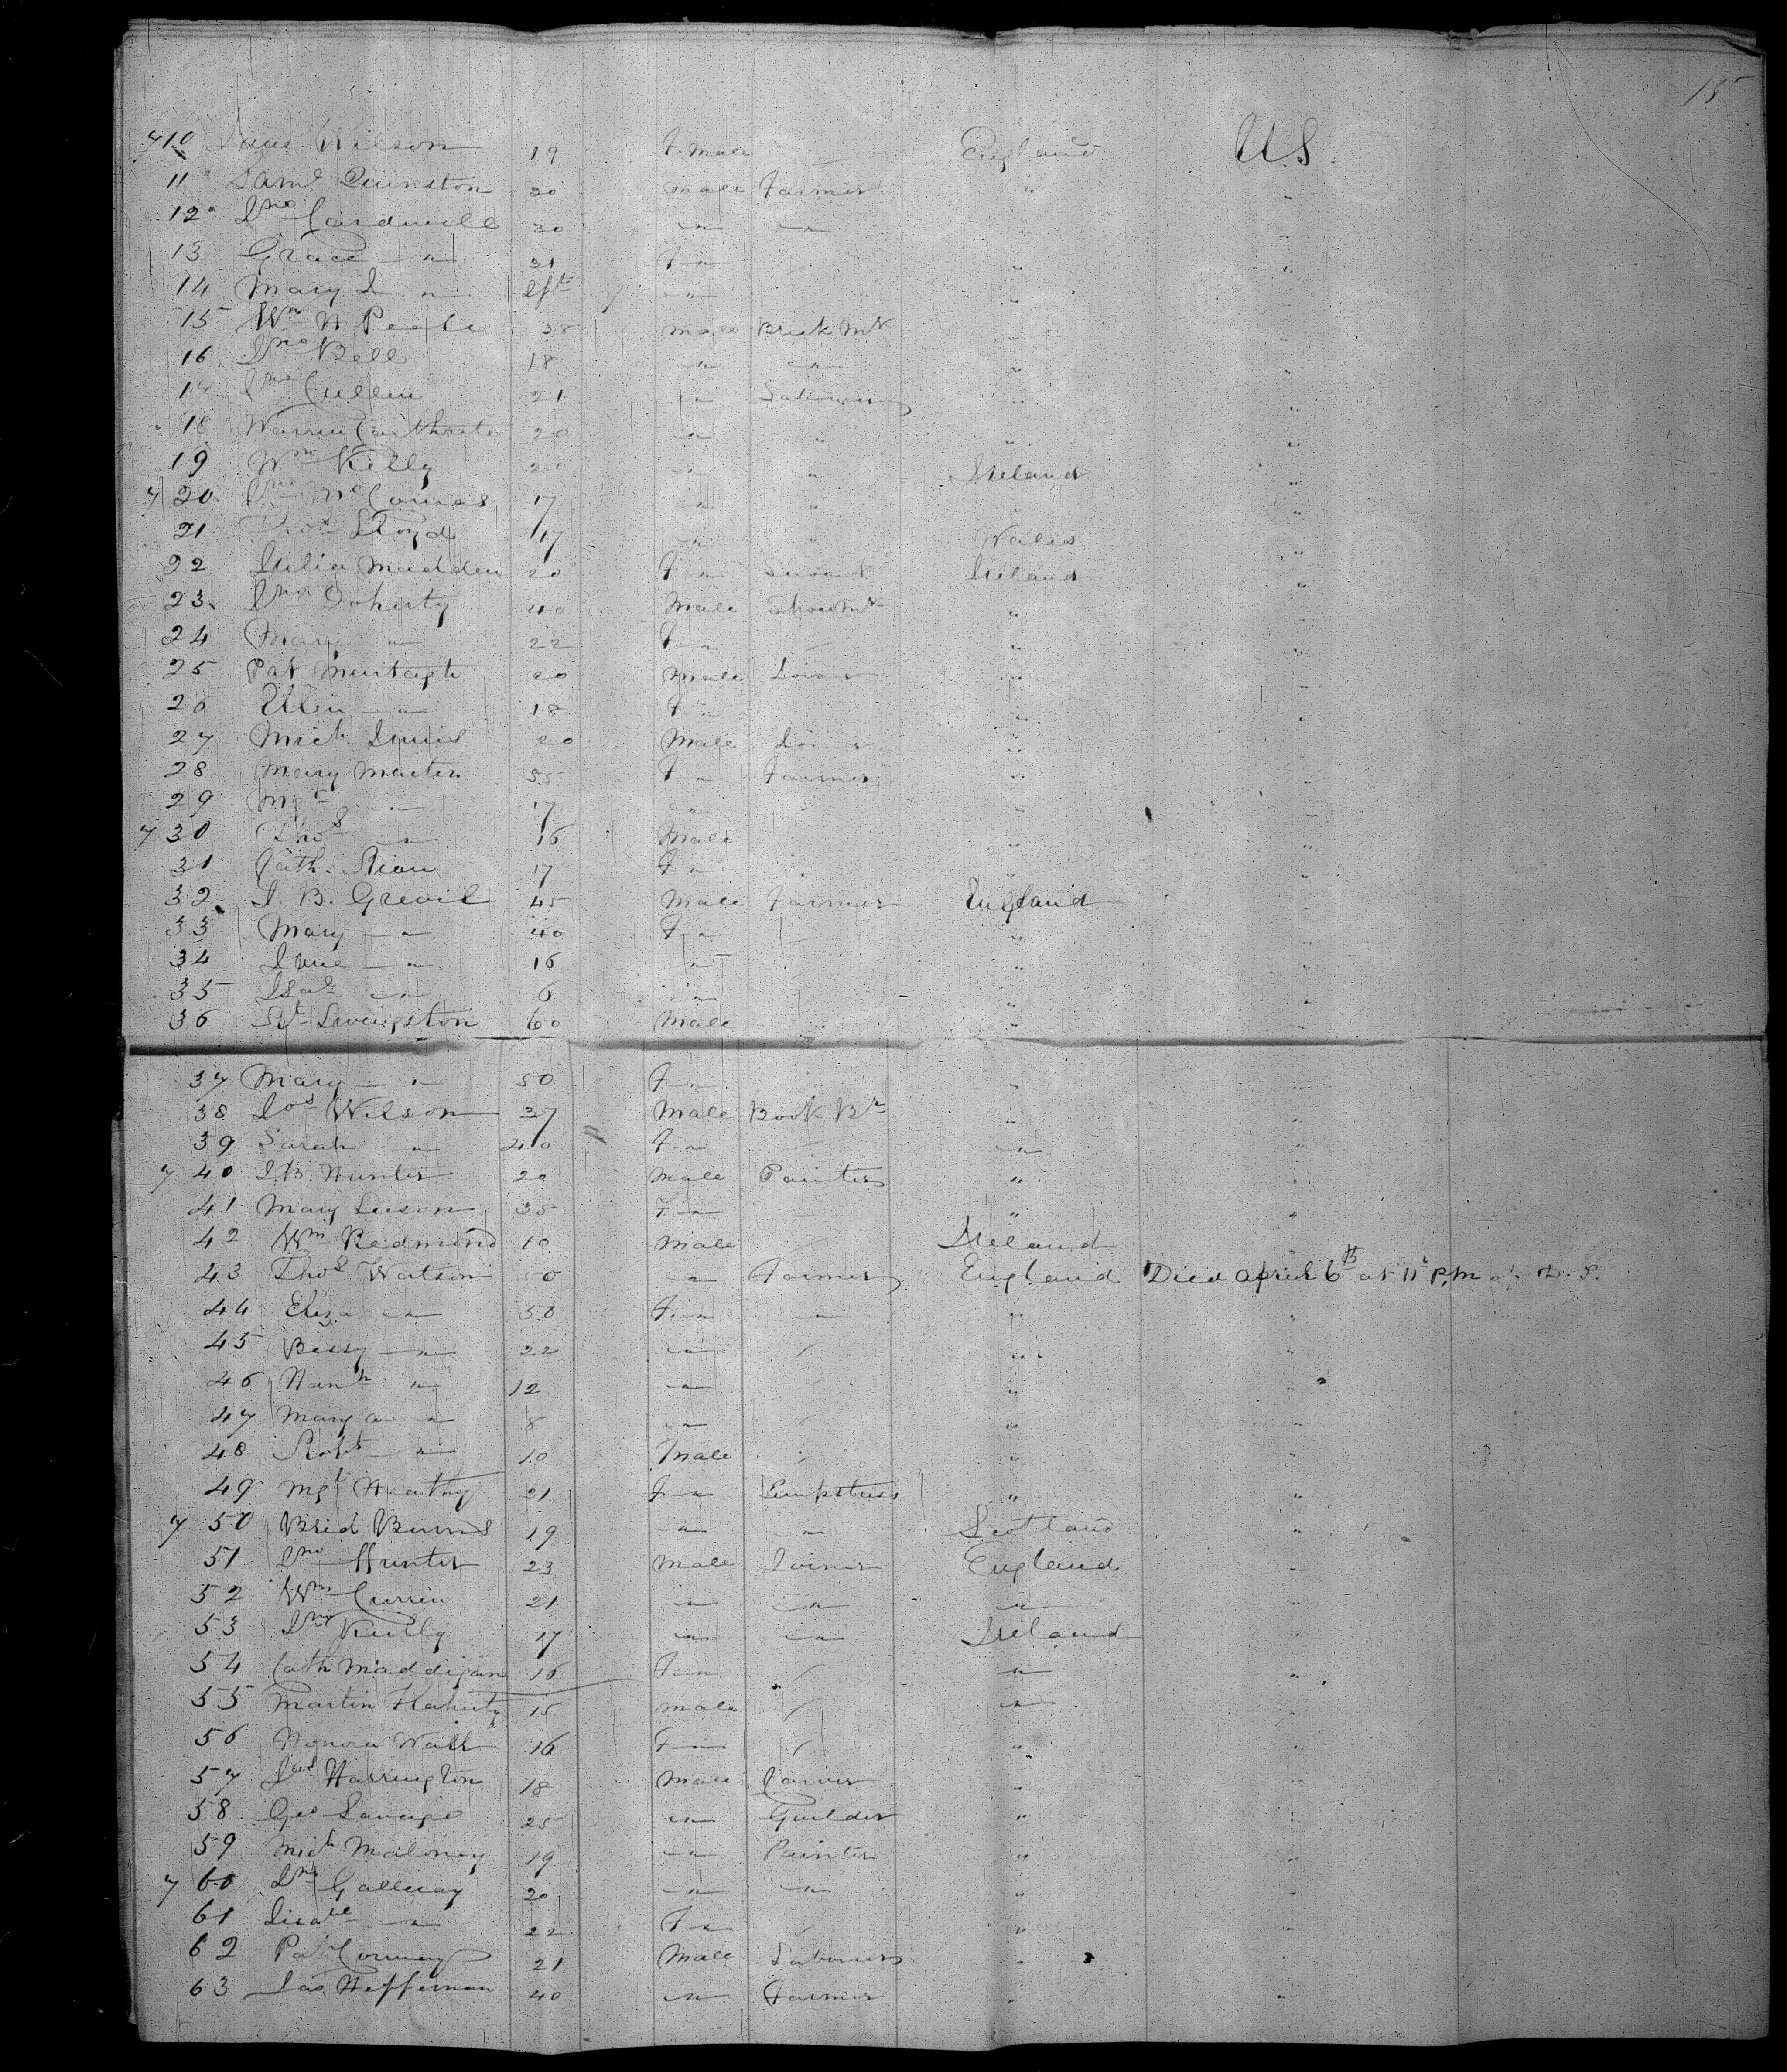 15
710 Jane Wilson 19 F. Male England U.S.
11 Saml Quinston 20 male Farmer " "
12 Jno Cardwell 30 " " " "
13 Grace " 31 F " " "
14 Mary J " Inft " " "
15 Wm H 38 male Brick Mr " "
16 Jno Bell 18 " " " "
17 Jno Cullen 21 " Labourer " "
18 Warren 20 " " " "
19 Wm Kelly 20 " " Ireland "
720 Jno 17 " " " "
21 Thos Lloyd 17 " " Wales "
22 Julia Madden 20 F " Servant Ireland "
23 Jno Doherty 40 Male Shoe Mr " "
24 Mary " 22 F " " "
25 Pat Murtagh 20 Male Joiner " "
26 Ellin " 18 F " " "
27 Mich 20 Male Joiner " "
28 Mary Martin 55 F " Farmer " "
29 Mgt " 17 " " "
730 Thos " 16 Male " "
31 Cath. Rian 17 F " " "
32 J. B. Grevil 45 Male Farmer England "
33 Mary " 40 F " " "
34 Jane " 16 " " "
35 Isal " 6 " " "
36 Rt Livingston 60 Male " "
37 Mary " 50 F " " "
38 Jos Wilson 37 Male Book Br " "
39 Sarah " 40 F " " "
740 J.B. Hunter 20 Male Painter " "
41 Mary Leeson 35 F " " "
42 Wm Redmond 10 Male Ireland "
43 Thos Watson 50 " Farmer England Died April 6th at 11 P.M
44 Eliza " 50 F " " " "
45 Bessy " 22 " " "
46 Hanh " 12 " " "
47 Mary a " 8 " " "
48 Robt " 10 Male " "
49 Mgt 21 F " " "
750 Brid Burns 19 " " Scotland "
51 Jno Hunter 23 Male Joiner England "
52 Wm Currin 21 " " " "
53 Jno 17 " " Ireland "
54 Cath Maddigan 16 F " " "
55 Martin Flaherty 15 male " "
56 Honora Wall 16 F " " "
57 Jas Harrington 18 Male Carver " "
58 Geo Savage 25 " Guilder " "
59 Mich Maloney 19 " Painter " "
760 Jno Gallway 20 " " " "
61 " 22 F " " "
62 Pat Conway 21 Male Labourer " "
63 Jas Heffernan 40 " Farmer " "